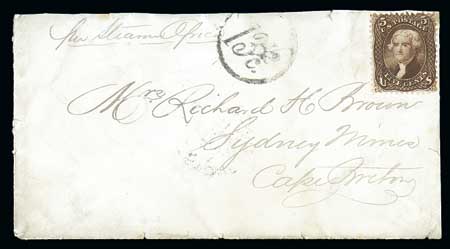 per Steam Africa
5 U.S. POSTAGE 5
Mrs Richard H Brown
Sydney Mines
Cape Breton